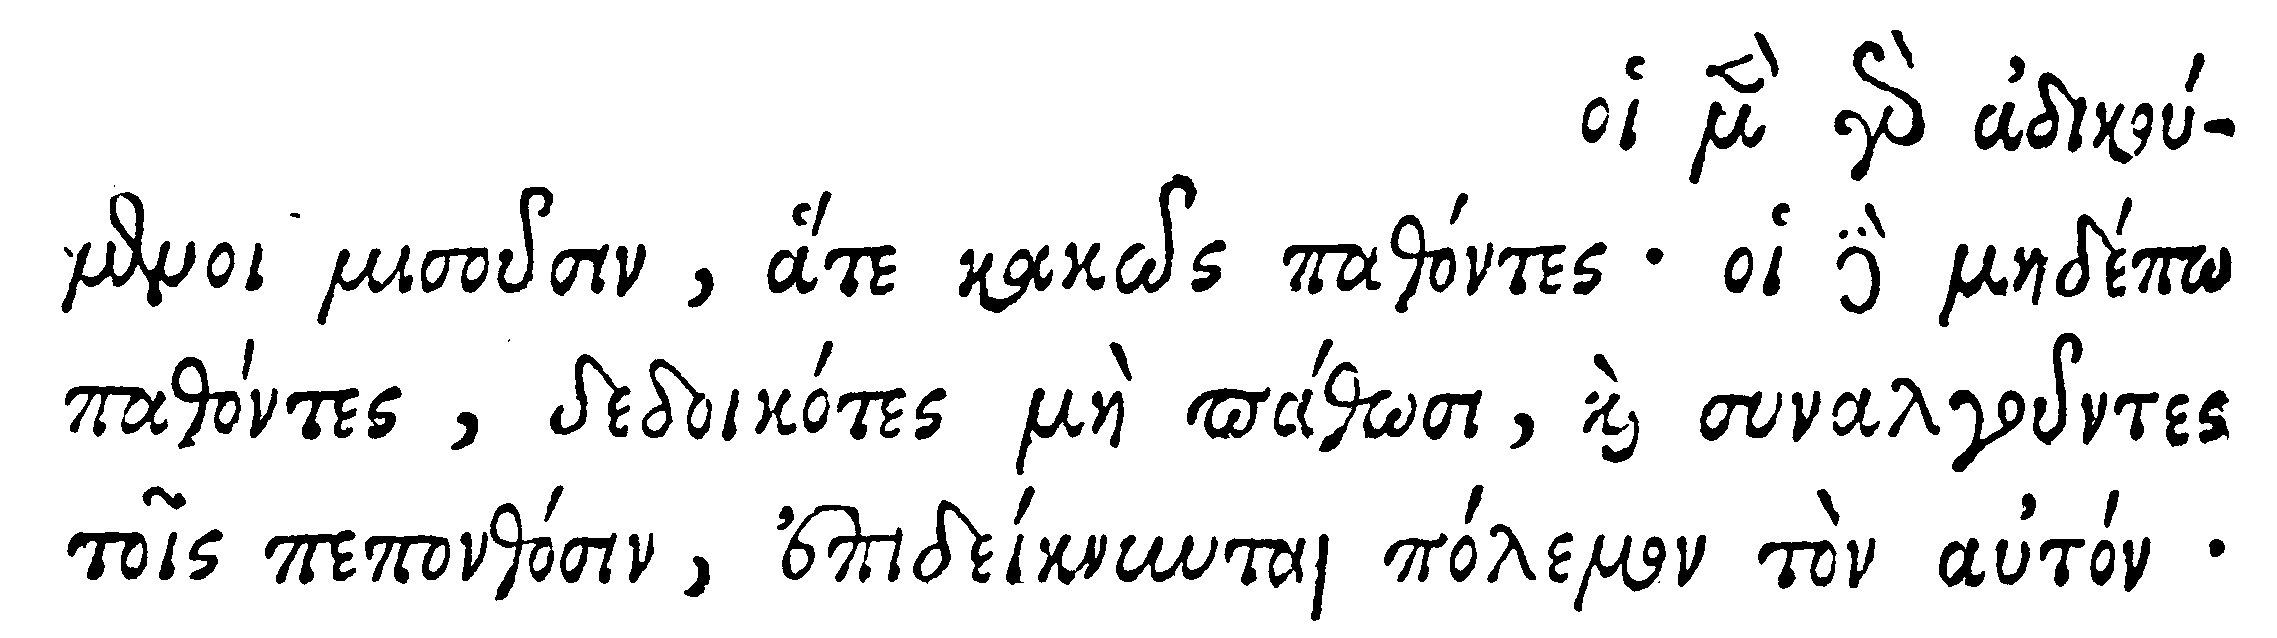 οἱ μὲν γὰρ ἀδικού-
μενοι μισοῦσιν, ἅτε κακῶς παθόντες· οἱ δὲ μηδέπω
παθόντες, δεδοικότες μὴ πάθωσι, καὶ συναλγοῦντες
τοῖς πεπονθόσιν, ἐπιδείκνυνται πόλεμον τὸν αὐτόν.